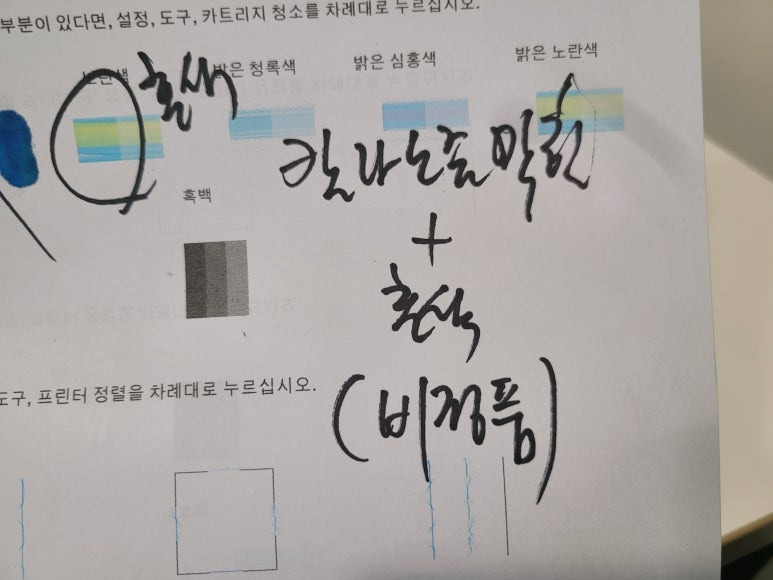 부분이 있다면, 설정, 도구, 카트리지 청소를 차례대로 누르십시오.
노란색 혼색 밝은 청록색 밝은 심홍색 밝은 노란색
칼라노즐막힘
흑백
+
혼색
(비정품)
도구, 프린터 정렬을 차례대로 누르십시오.